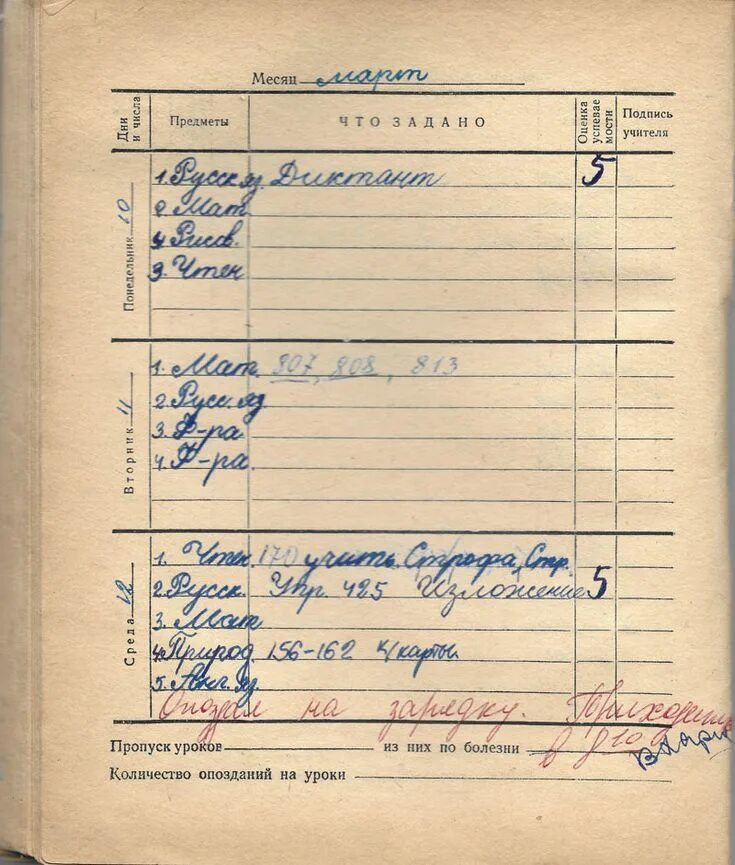 Месяц март
Дни и числа Предметы ЧТО ЗАДАНО Оценка успевае мости Подпись учителя
Понедельник 10
1. Русск яз. Диктант 5
2 Мат.
4 Рисов.
3. Чтен
Вторник 11
1. Мат. 807, 808, 813
2. Русс. яз
3. Ф-ра
4. Ф-ра.
Среда 12
1. Чтен. 170 учить. Строфа, Стр.
2. Русск. Упр. 425 Изложение 5
3. Мат
4. Природ. 156-162 К/карты.
5. Анг. яз.
Опоздал на зарядку. Приходить
Пропуск уроков из них по болезни в 8 10
Количество опозданий на уроки